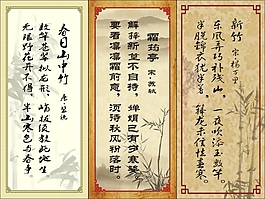 春日山中竹
唐 裴说
数竿苍翠拟龙形，峭拔须教此地生
无限野花开不得，半山寒色与春争
霜筠亭
宋·苏轼
解箨新篁不自持，婵娟已有岁寒姿
要看凛凛霜前意，须待秋风粉落时
新竹
宋 杨万里
东风弄巧补残山，一夜吹添玉数竿
半脱锦衣犹半著，箨龙未信怯春寒